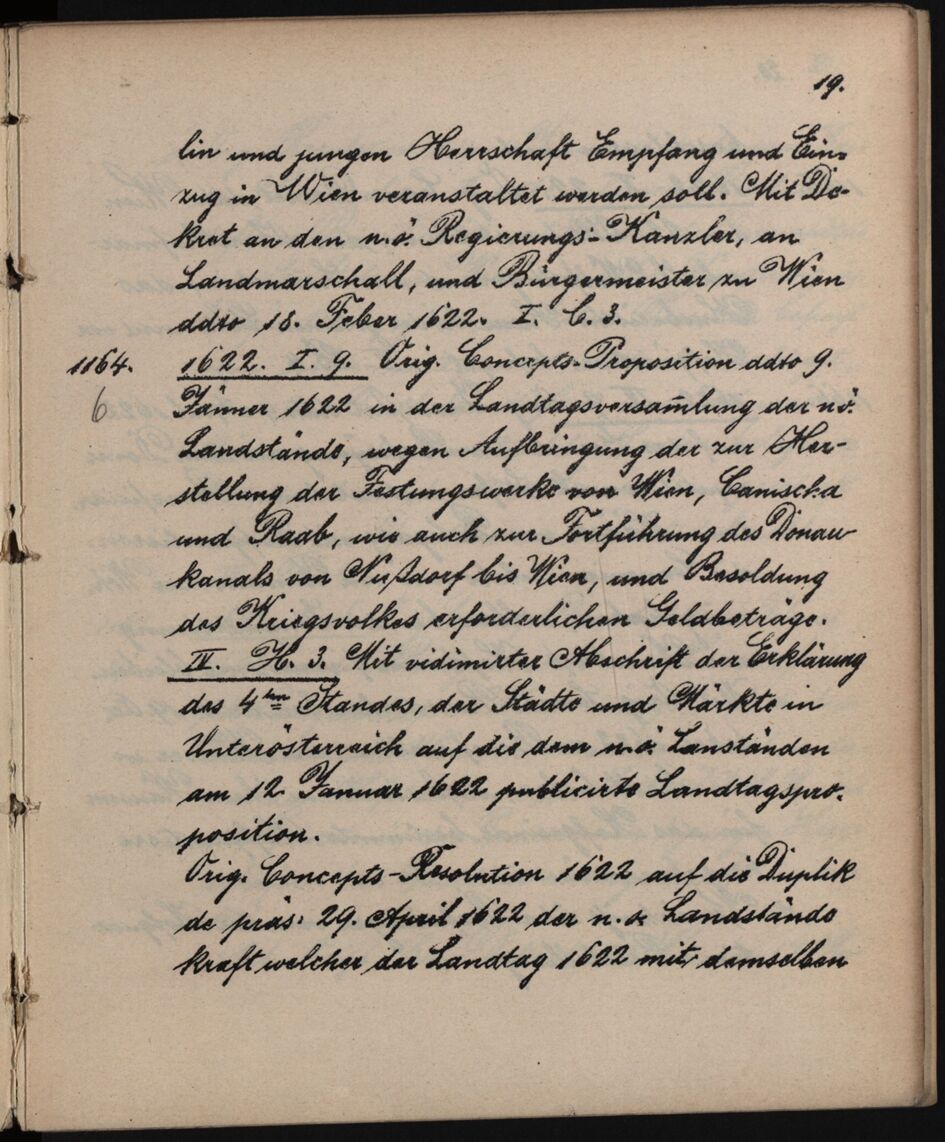 19.
lin und jungen Herrschaft Empfang und Ein-
zug in Wien veranstaltet werden soll. Mit De-
kret an den n.ö. Regierungs-Kanzler, an
Landmarschall, und Bürgermeister zu Wien
ddto 18. Feber 1622. I. C. 3.
1164. 1622. I. 9. Orig. Concepts-Proposition ddto 9.
6 Jänner 1622 in der Landtagsversam̄lung der nö.
Landstände, wegen Aufbringung der zur Her-
stellung der Festungswerke von Wien, Canischa
und Raab, wie auch zur Fortführung des Donau
kanals von Nußdorf bis Wien, und Besoldung
des Kriegsvolkes erforderlichen Geldbeträge.
IV. H. 3. Mit vidimirter Abschrift der Erklärung
des 4ten Standes, der Städte und Märkte in
Unterösterreich auf die dem n.ö. Lanständen
am 12 Januar 1622 publicirte Landtagspro-
position.
Orig. Concepts-Resolution 1622 auf die Duplik
de präs: 29. April 1622 der n.ö. Landstände
kraft welcher der Landtag 1622 mit demselben